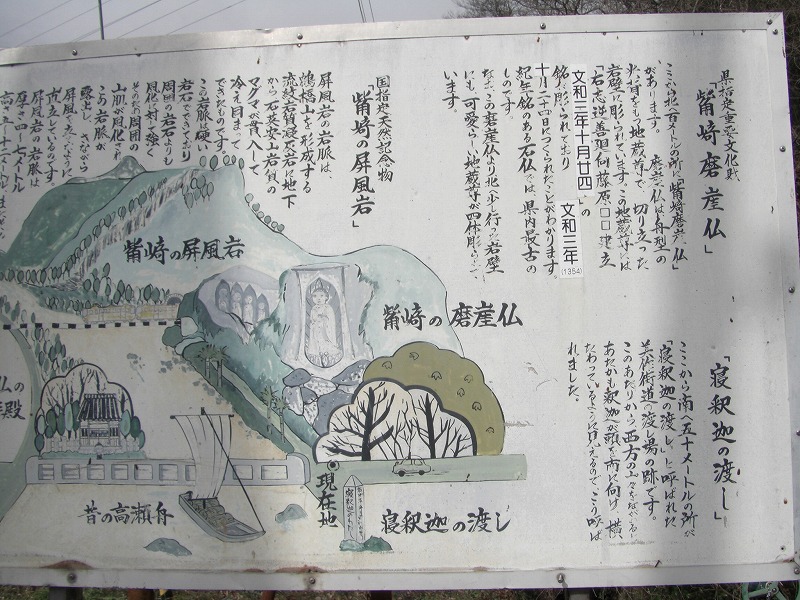 県指定重要文化財
「觜崎磨崖仏」
ここから北へ百メートルの所に「觜崎磨崖仏」
があります。 磨崖仏は舟型の
光背をもつ地蔵尊で、切り立った
岩壁に彫られています。この地蔵尊には
「右志逆善廻向藤原口口建立
文和三年十月廿四」の
銘が彫られており 文和三年
(1354)
十月二十四日につくられたことがわかります。
紀年銘のある石仏では、県内最古の
ものです。
なお、この磨崖仏より北へ少し行った岩壁
にも、可愛らしい地蔵尊が四体彫られて
います。
国指定天然記念物
「觜崎の屏風岩」
屏風岩の岩脈は
鶴嘴山を形成する
流紋岩質凝灰岩に地下
から石英安山岩質の
マグマが貫入して
冷え固まって
できたものです。
この岩脈が硬い
岩石でできており
周囲の岩石よりも
風化に対して強く
そのため周囲の
山肌が風化され
この岩脈が
露出し、
屏風を立てたように
直立しているのです。
屏風岩の岩脈は
厚さ四〜七メートル
高さ五〜十二メートル
「寝釈迦の渡し」
ここから南へ五十メートルの所が
「寝釈迦の渡し」と呼ばれた
美作街道の渡し場の跡です。
このあたりから西方の山々をながめる
あたかも釈迦が頭を南に向け、横
たわっているように見えるので、こう呼ば
れました。
觜崎の屏風岩
觜崎の磨崖仏
仏の
殿
昔の高瀬舟
現在地
寝釈迦の渡し